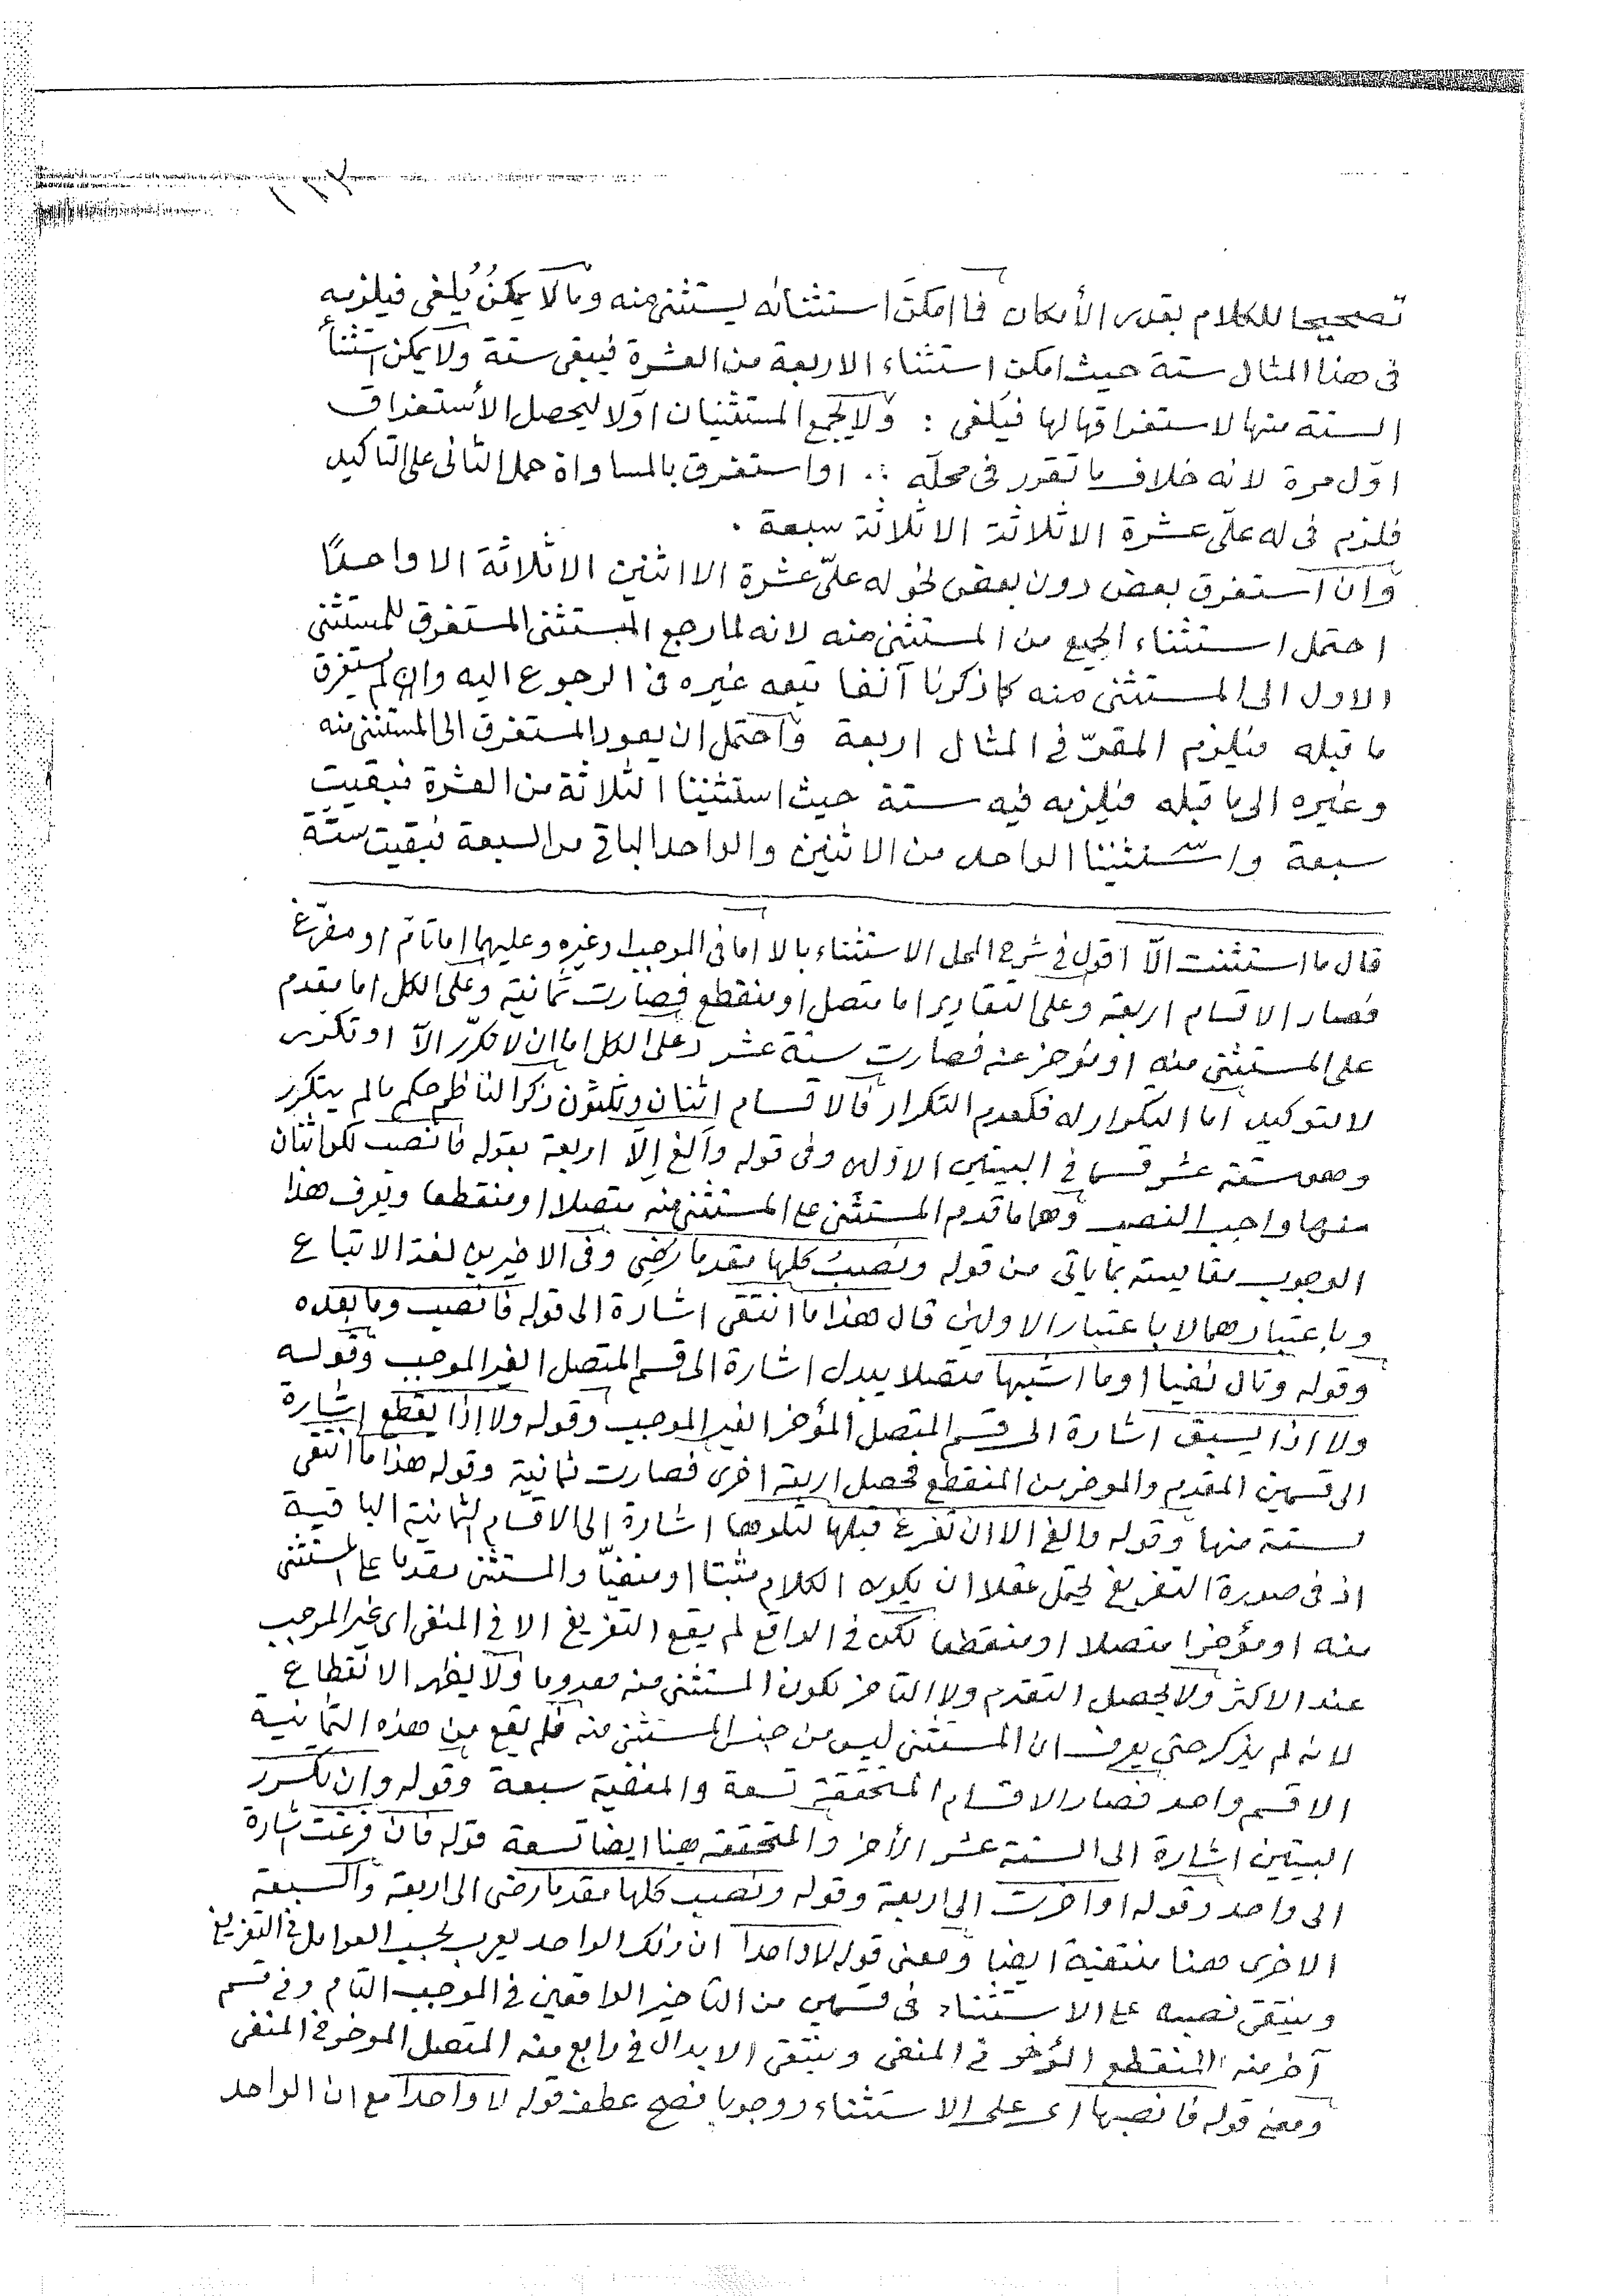 تصحيحا للكلام بقدر الأمكان فما امكنَ استثنائه يستثنى منه وما لا يمكنُ يُلغى فيلزمه
فى هذا المثال ستة حيث امكن استثناء الاربعة من العشرة فيبقى ستة ولا يمكن استثنأ
الستة منها لاستغراقها لها فيُلغى : ولا يجمع المستثنيان اوّلا ليحصل الأستغراق
اوّل مرة لانه خلاف ما تقرر فى محلّه ∴ او استغرق بالمساواة حمل الثانى على التاكيد
فلزم فى له علىّ عشرة الا ثلاثة الا ثلاثة سبعة .
وان استغرق بعض دون بعض نحو له علىّ عشرة الا اثنين الا ثلاثة الا واحدًا
احتمل استثناء الجميع من المستثنى منه لانه لما رجع المستثنى المستغرق للمستثنى
الاول الى المستثنى منه كما ذكرنا آنفا تبعه غيره فى الرجوع اليه وان لم يستغرق
ما قبله فيلزم المقرّ فى المثال اربعة واحتمل ان يعود المستغرق الى المستثنى منه
وغيره الى ما قبله فيلزمه فيه ستة حيث استثنينا الثلاثة من العشرة فبقيت
سبعة واستثنينا الواحد من الاثنين والواحد الباقى من السبعة فبقيت ستّة
قال ما استثنت الّا اقول فى شرح المحل الاستثناء بالا اما فى الموجب او غيره وعليهما اما تام او مفرّغ
فصار الاقسام اربعة وعلى التقادير اما متصل او منقطع فصارت ثمانية وعلى الكل اما يقدم
على المستثنى منه او يؤخر عنه فصارت ستة عشر وعلى الكل اما ان لا تكرّر الّا او تكرر
لا لتوكيد اما التكرار له فكعدم التكرار فالاقسام اثنان وثلثون ذكر الناظم حكم ما لم يتكرر
وهو ستة عشر قسما فى البيتين الاولين وفى قوله والغ الّا اربعة بقوله فانصب لكن اثنان
منها واجب النصب وهما ما قدم المستثنى على المستثنى منه متصلا او منقطعا ويعرف هذا
الوجوب مقايسته بما ياتى من قوله ونصبُ كلها مقدما رضى وفى الاخيرين لغة الاتباع
وباعتبارهما لا باعتبار الاولين قال هذا ما انتقى اشارة الى قوله فانصب وما بعده
وقوله وتال نفيا او ما اشبها متصلا يبدل اشارة الى قسم المتصل الغير الموجب وقوله
ولا اذا يسبق اشارة الى قسم المتصل المؤخر الغير الموجب وقوله ولا اذا يقطع اشارة
الى قسمين المقدم والموخر من المنقطع فحصل اربعة اخرى فصارت ثمانية وقوله هذا ما انتقى
لستة منها وقوله والغ الا ان تفرغ قبلها لتلوها اشارة الى الاقسام الثمانية الباقية
اذ فى صورة التفريغ يحتمل عقلا ان يكون الكلام مثبتا او منفيّا والمستثنى مقدما على المستثنى
منه او مؤخرا متصلا او منقطعا لكن فى الواقع لم يقع التفريغ الا فى المنفى اى غير الموجب
عند الاكثر ولا يحصل التقدم ولا التاخر لكون المستثنى منه معدوما ولا يظهر الانقطاع
لانه لم يذكر حتى يعرف ان المستثنى ليس من جنس المستثنى منه فلم يقع من هذه الثمانية
الا قسم واحد فصار الاقسام المتحققة تسعة والمنفية سبعة وقوله وان تكرر
البيتين اشارة الى الستة عشر الأخر والمتحققة هنا ايضا تسعة قوله فان فرغت اشارة
الى واحد وقوله او اخرت الى اربعة وقوله ونصب كلها مقدما رضى الى اربعة والسبعة
الاخرى هنا منتفية ايضا ومعنى قوله لا واحدا ان ذلك الواحد يعرب بحسب العوامل فى التفريغ
وينتقى نصبه على الاستثناء فى قسمين من التاخير الواقعين فى الموجب التام وفى قسم
آخر منه المنقطع المؤخر فى المنفى وينتقى الابدال فى رابع منه المتصل الموخر فى المنفى
ومعنى قوله فانصبها اى على الاستثناء ووجوبا فصح عطف قوله لا واحدا مع ان الواحد